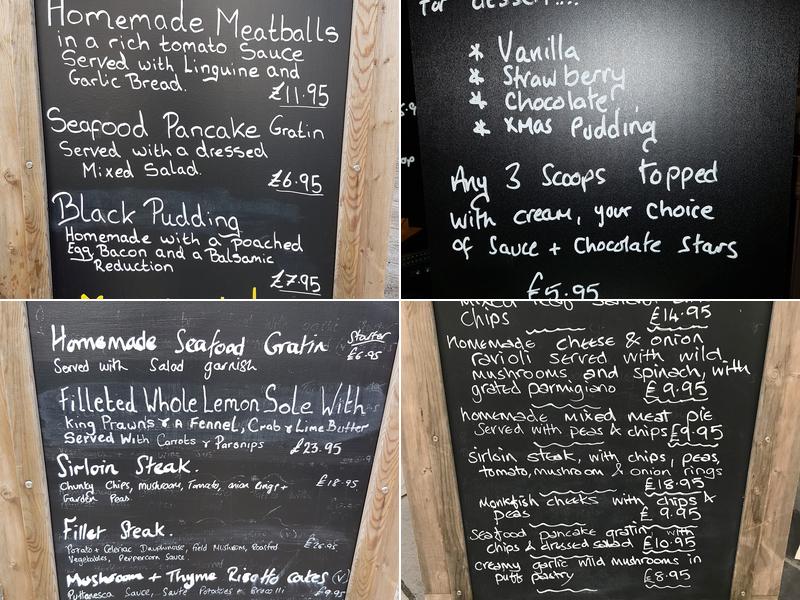 Homemade Meatballs
in a rich tomato Sauce
Served with Linguine and
Garlic Bread.
£11.95
Seafood Pancake Gratin
Served with a dressed
Mixed Salad.
£6.95
Black Pudding
Homemade with a Poached
Egg, Bacon and a Balsamic
Reduction
£7.95
for dessert....
* Vanilla
* Strawberry
* Chocolate
* XMas Pudding
Any 3 Scoops topped
with cream, your choice
of Sauce + Chocolate Stars
£5.95
Homemade Seafood Gratin Starter
£6.95
Served with Salad garnish
Filleted Whole Lemon Sole With
King Prawns & A Fennel, Crab & Lime Butter
Served With Carrots & Parsnips £23.95
Sirloin Steak.
Chunky Chips, mushroom, Tomato, onion Rings + £18.95
Garden Peas.
Fillet Steak.
Potato + Celeriac Dauphinoise, Field Mushroom, Roasted £26.95
Vegetables, Peppercorn Sauce.
Mushroom + Thyme Risotto cakes (v)
Puttanesca Sauce, Sauté Potatoes + Broccoli £9.95
chips £14.95
homemade cheese & onion
ravioli served with wild
mushrooms and spinach, with
grated parmigiano £9.95
homemade mixed meat pie
Served with peas & chips £9.95
sirloin steak, with chips, peas,
tomato, mushroom & onion rings
£18.95
Monkfish cheeks with chips &
peas £9.95
Seafood pancake gratin with
chips & dressed salad £10.95
creamy garlic wild mushrooms in
puff pastry £8.95